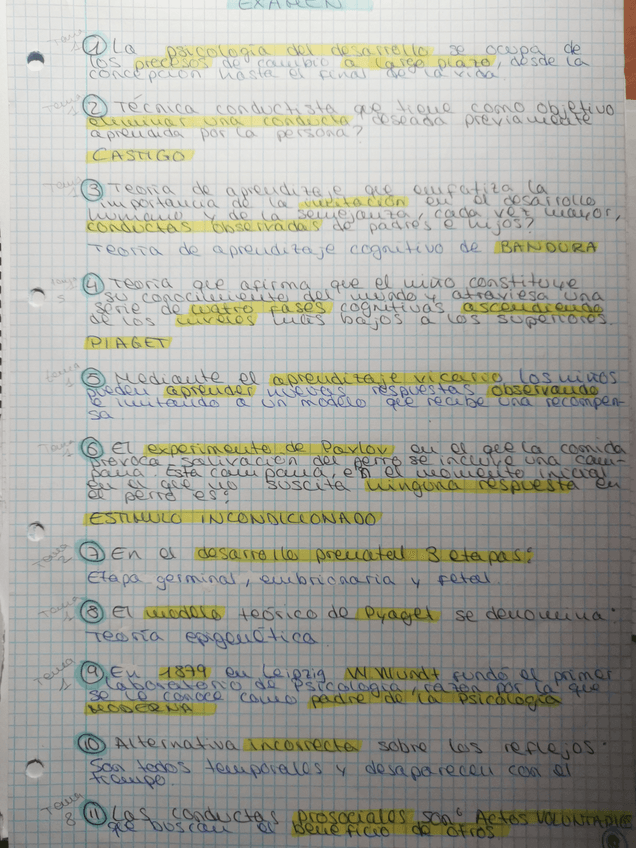 EXAMEN
Tema 1 ① La psicología del desarrollo se ocupa de
los procesos de cambio a largo plazo, desde la
concepción hasta el final de la vida.
Tema 1 ② Técnica conductista que tiene como objetivo
eliminar una conducta deseada previamente
aprendida por la persona?
CASTIGO
Tema 1 ③ Teoría de aprendizaje que enfatiza la
importancia de la imitación en el desarrollo
humano y de la semejanza, cada vez mayor,
conductas observadas de padres e hijos?
Teoría de aprendizaje cognitivo de BANDURA
④ Teoría que afirma que el niño constituye
su conocimiento del mundo y atraviesa una
serie de cuatro fases cognitivas ascendiendo
de los niveles más bajos a los superiores.
PIAGET
⑤ Mediante el aprendizaje vicario los niños
pueden aprender nuevas respuestas observando
e imitando a un modelo que recibe una recompen-
sa
⑥ El experimento de Pavlov en el que la comida
provoca salivación del perro se incluye una cam-
pana. Esta campana, en el momento inicial
en el que no suscita ninguna respuesta en
el perro es?
ESTIMULO INCONDICIONADO
Tema 2 ⑦ En el desarrollo prenatal 3 etapas:
Etapa germinal, embrionaria y fetal.
Tema 1 ⑧ El modelo teórico de Pyaget se denomina:
Teoría epigenética.
Tema 1 ⑨ En 1879 en Leipzig W.Wundt fundó el primer
laboratorio de Psicología, razón por la que
se le conoce como padre de la Psicología
MODERNA
⑩ Alternativa incorrecta sobre los reflejos:
Son todos temporales y desaparecen con el
tiempo.
Tema 8 ⑪ Las conductas prosociales son: Actos VOLUNTARIOS
que buscan el beneficio de otros